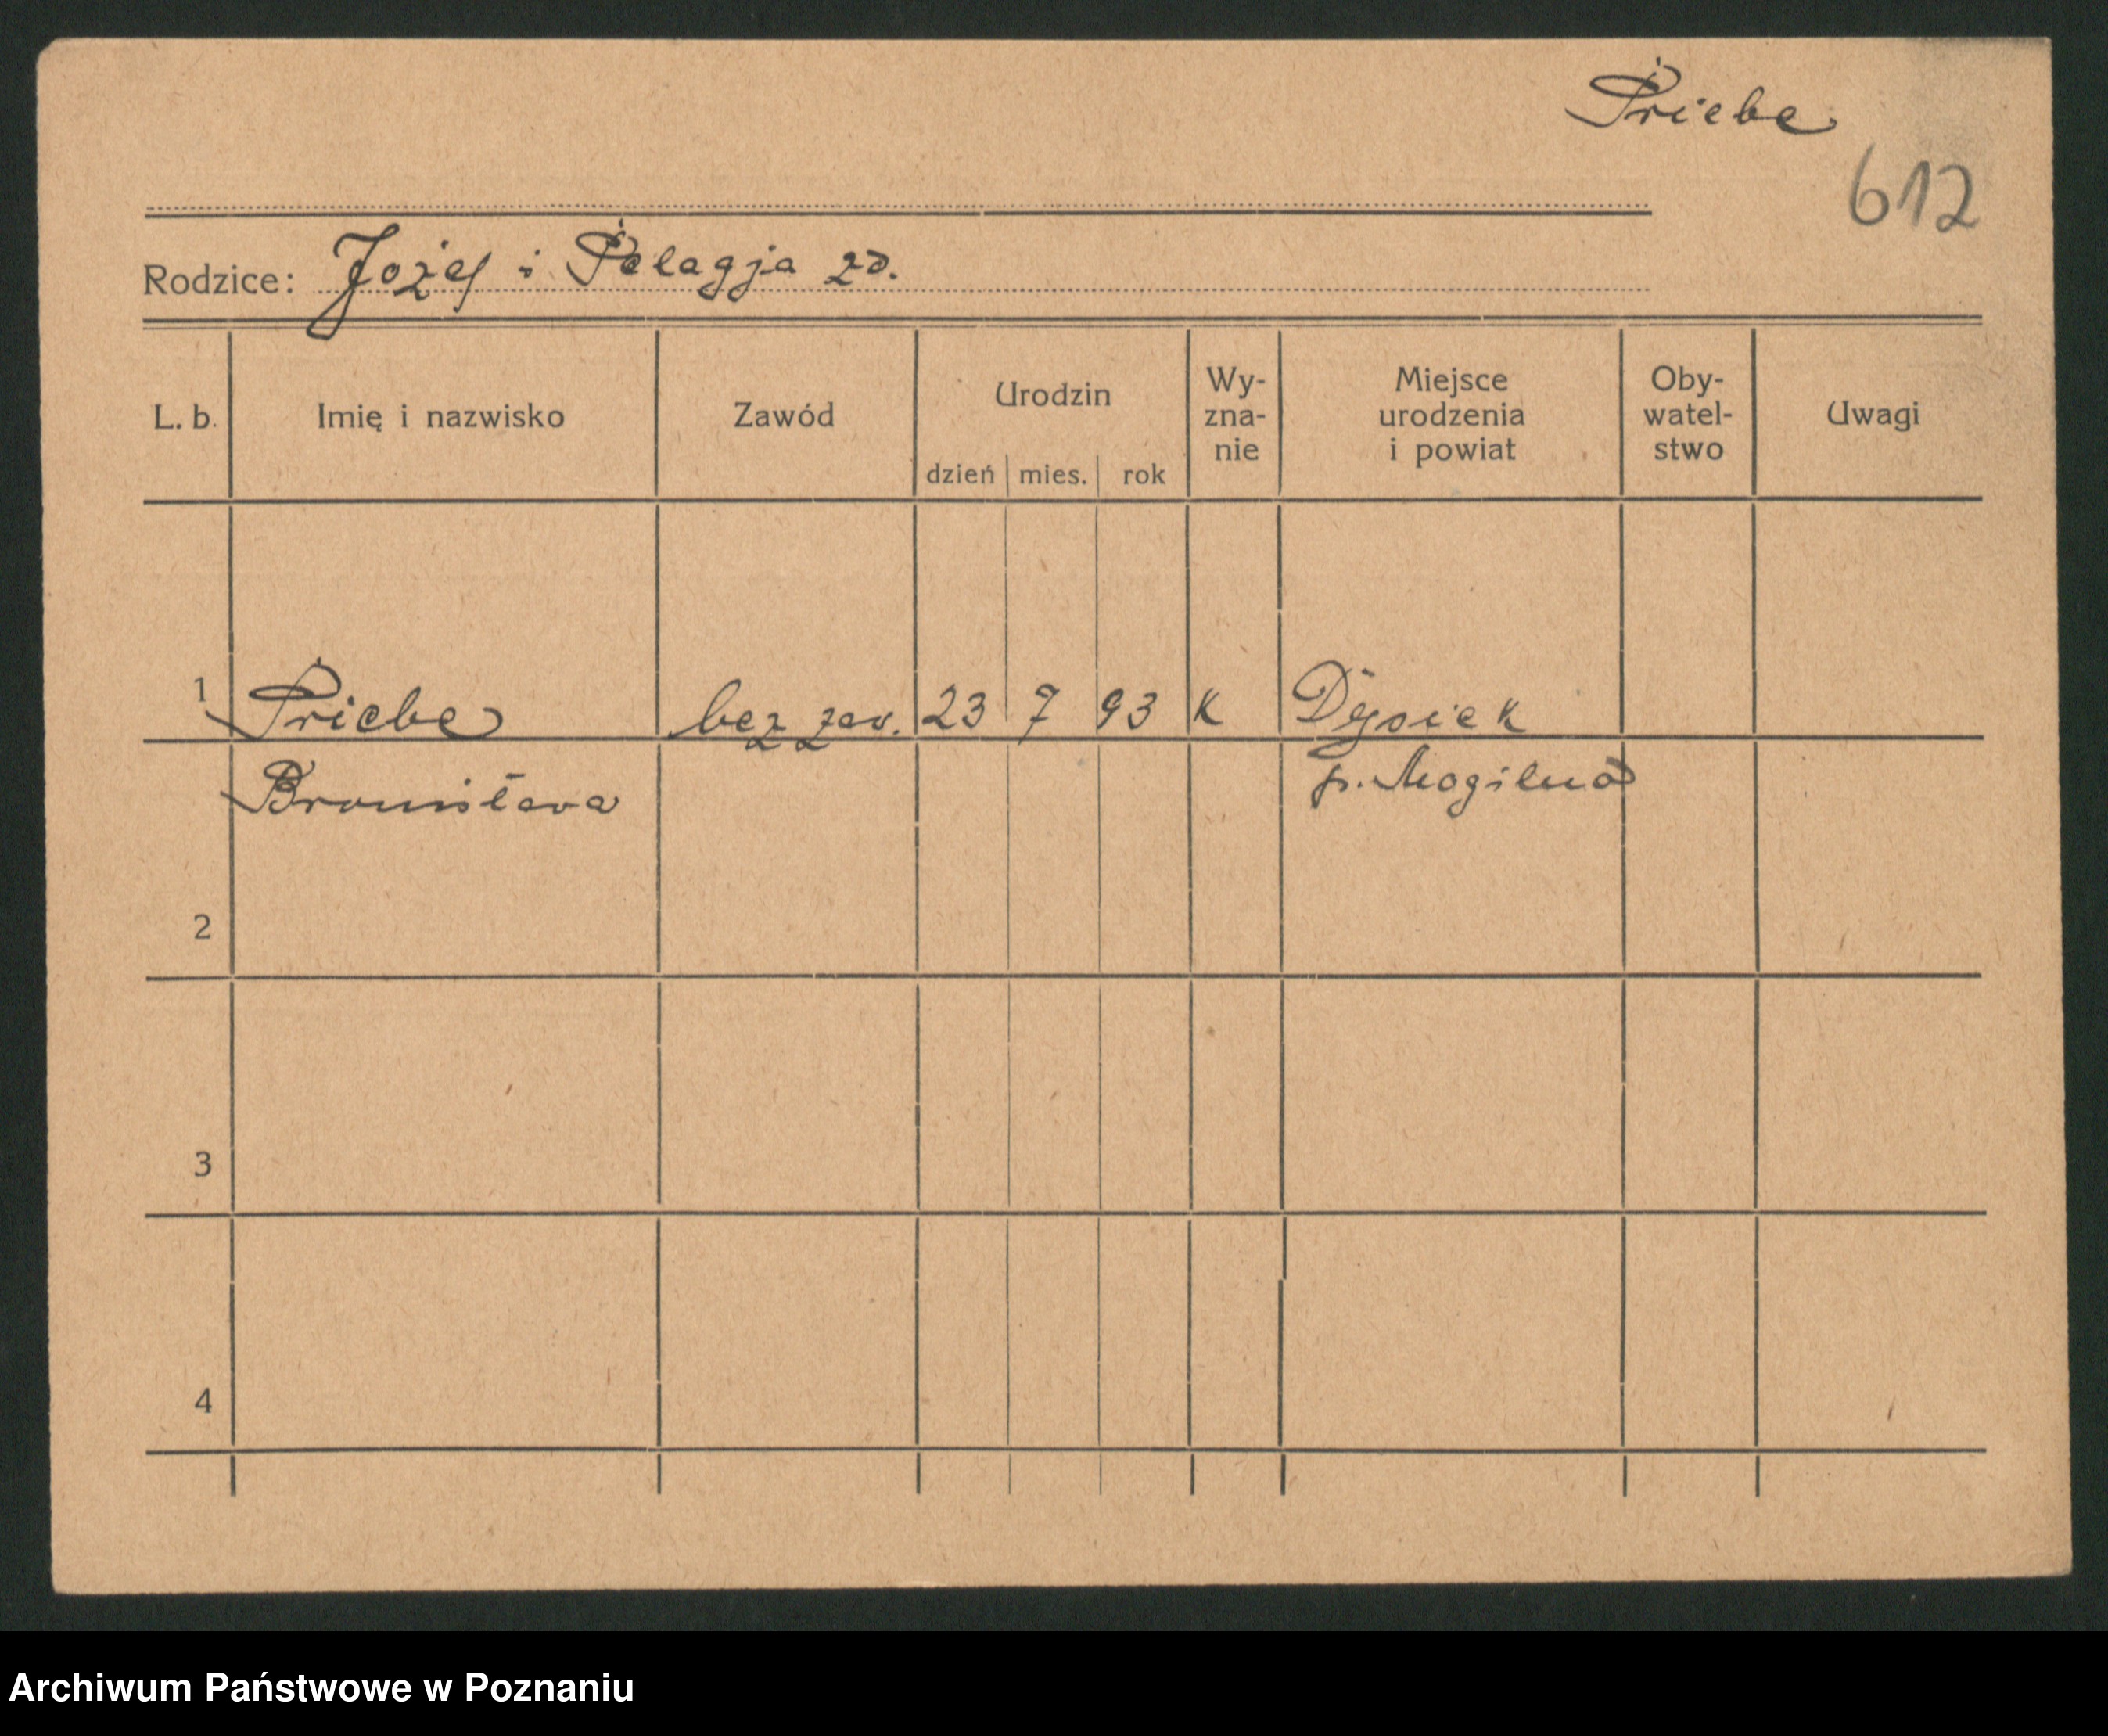 Priebe
612
Rodzice: Jożef i Pelagja zd.
L. b. Imię i nazwisko Zawód Urodzin dzień mies. rok Wy-zna-nie Miejsce urodzenia i powiat Oby-watel-stwo Uwagi
1 Priebe bez zav. 23 7 93 K Dysiek
Bronisława p. Mogilno
2
3
4
Archiwum Państwowe w Poznaniu